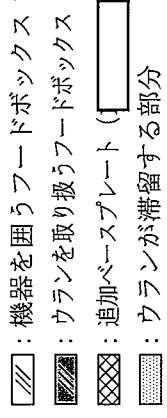 ：機器を囲うフードボックス
：ウランを取り扱うフードボックス
：追加ベースプレート（）
：ウランが滞留する部分